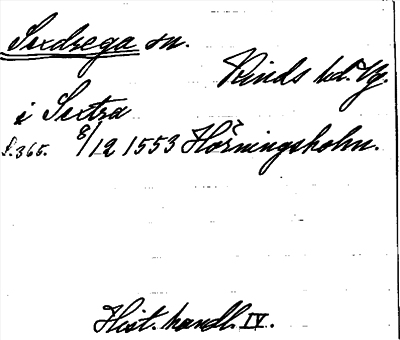 Sexdrega sn.
Kinds hd. Vg.
i Sextra
s. 365. 8/12 1553 Hörningsholm.
Hist. handl. IV.